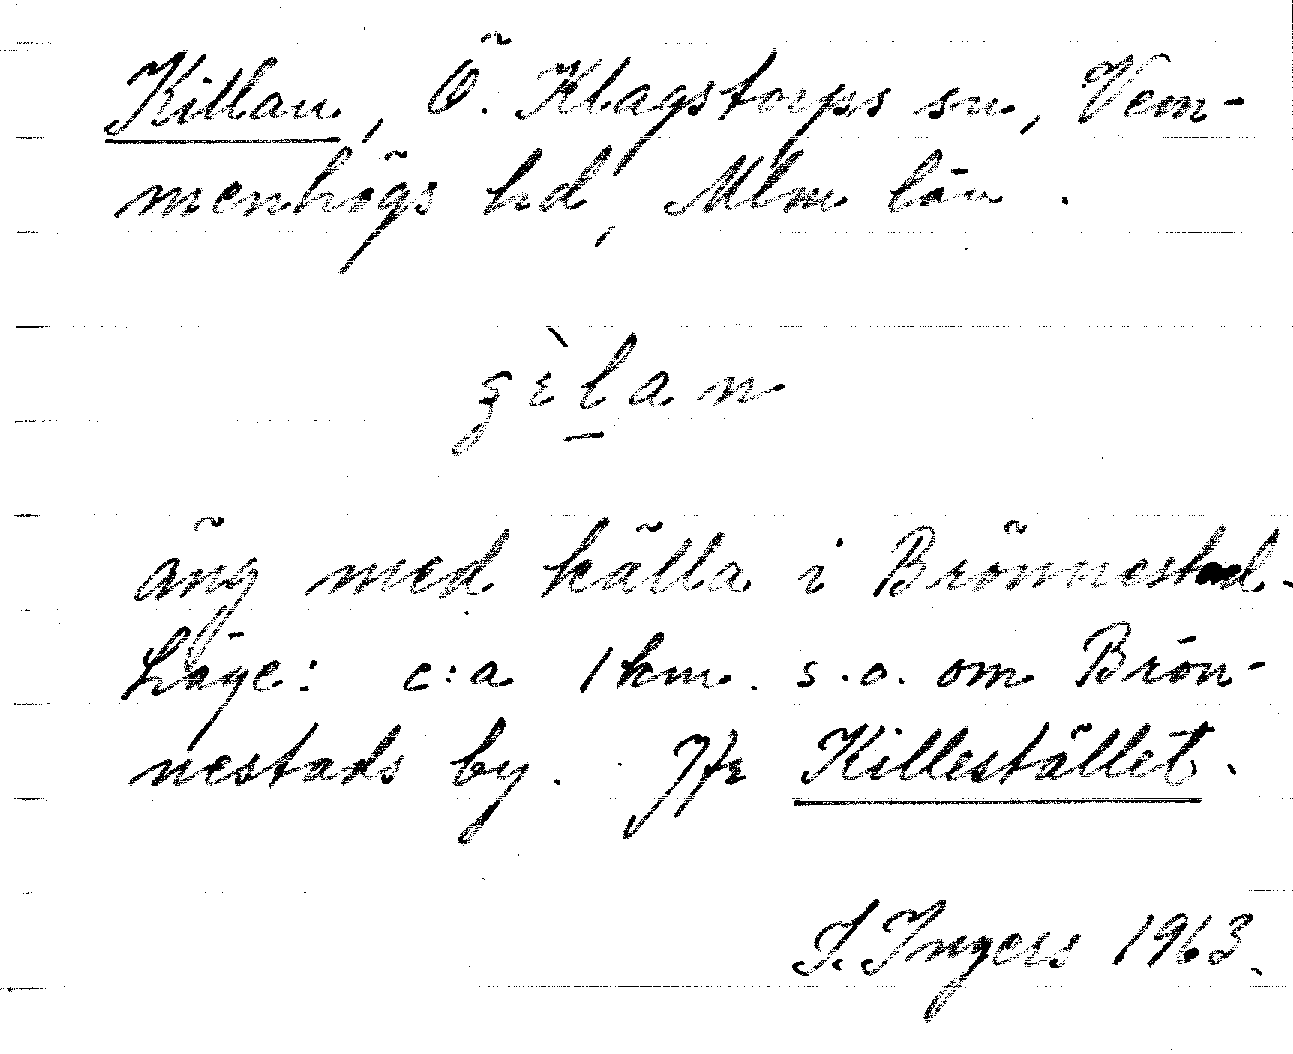 Killan, Ö. Klagstorps sn, Vem-
menhögs hd, Mlm län.
äng med källa i Brönnestad.
Läge: c:a 1 km. s.o. om Brön-
nestads by. Jfr Killestället.
I. Ingers 1963.